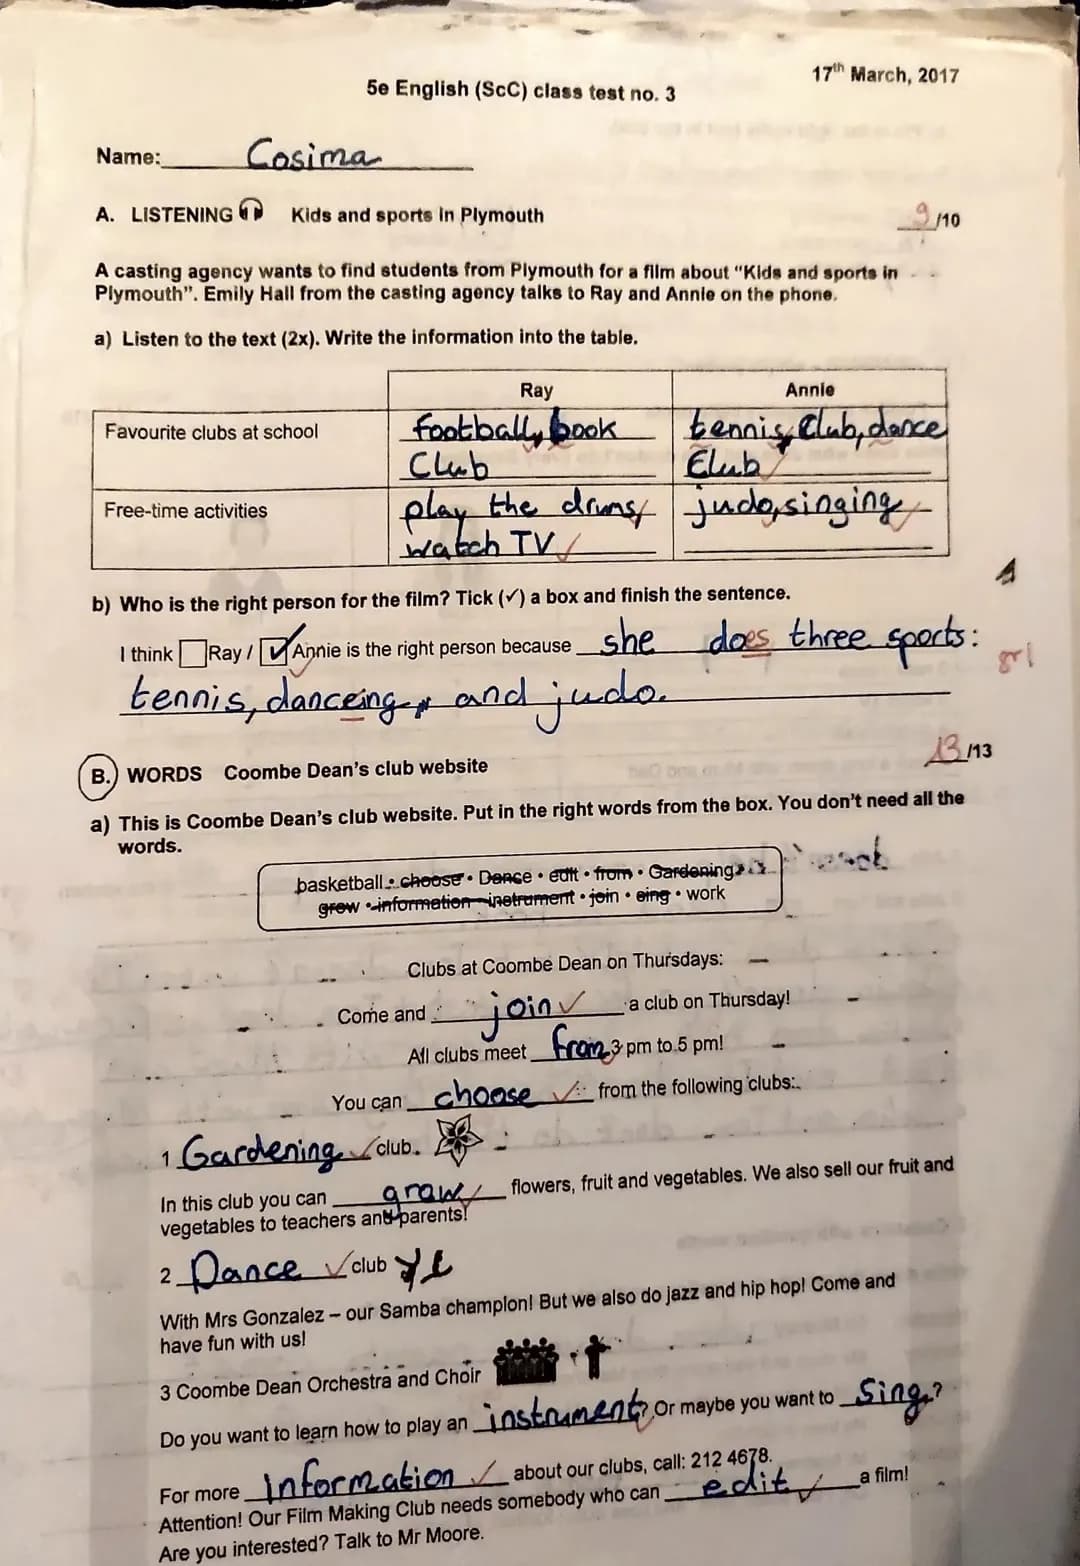 17th March, 2017
5e English (ScC) class test no. 3
Name: Cosima
A. LISTENING Kids and sports in Plymouth 9/10
A casting agency wants to find students from Plymouth for a film about "Kids and sports in
Plymouth". Emily Hall from the casting agency talks to Ray and Annie on the phone.
a) Listen to the text (2x). Write the information into the table.
Ray Annie
Favourite clubs at school football, book tennis, Club, dance
Club Club
Free-time activities play the drums, judo, singing
watch TV
b) Who is the right person for the film? Tick (✓) a box and finish the sentence.
I think Ray / ✓ Annie is the right person because she does three sports:
tennis, danceing, and judo.
gr1
13/13
B. WORDS Coombe Dean's club website
a) This is Coombe Dean's club website. Put in the right words from the box. You don't need all the
words.
basketball • choose • Dance • edit • from • Gardening
grow • information • instrument • join • sing • work
Clubs at Coombe Dean on Thursdays:
Come and join a club on Thursday!
All clubs meet from 3 pm to 5 pm!
You can choose from the following clubs:
1 Gardening club.
In this club you can grow flowers, fruit and vegetables. We also sell our fruit and
vegetables to teachers and parents!
2 Dance club
With Mrs Gonzalez – our Samba champion! But we also do jazz and hip hop! Come and
have fun with us!
3 Coombe Dean Orchestra and Choir
Do you want to learn how to play an instrument? Or maybe you want to sing?
For more Information about our clubs, call: 212 4678.
Attention! Our Film Making Club needs somebody who can edit a film!
Are you interested? Talk to Mr Moore.